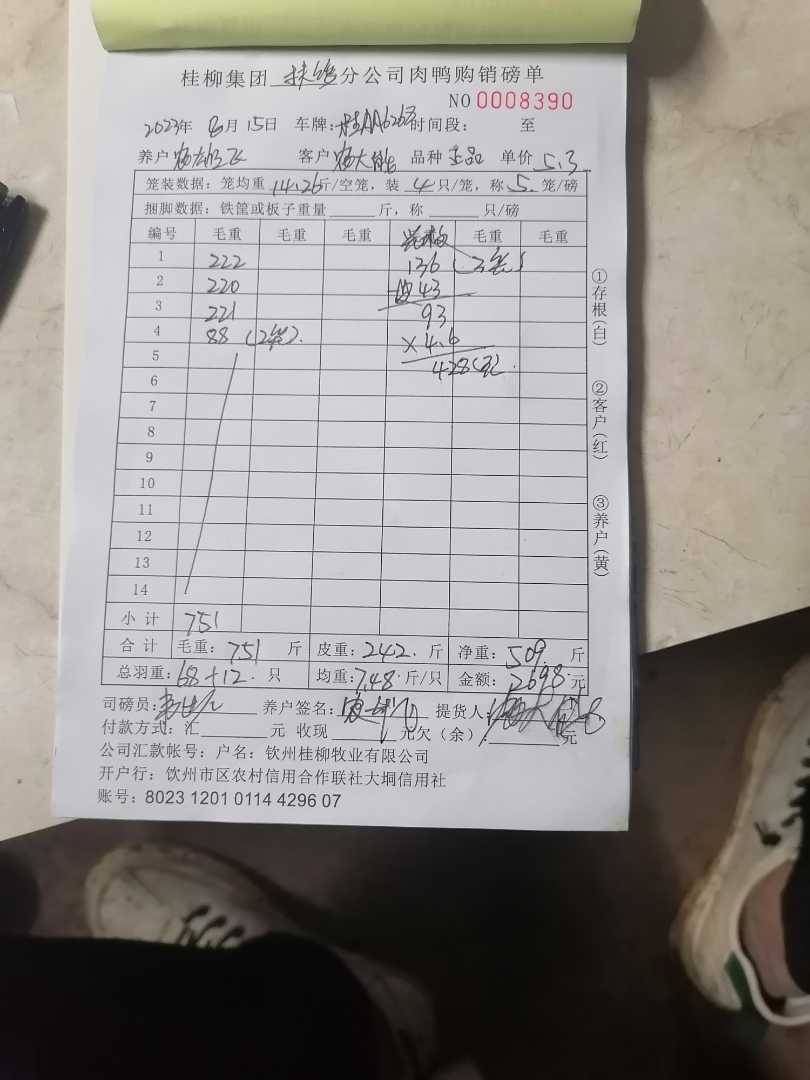 桂柳集团 扶绥 分公司肉鸭购销磅单
NO 0008390
2023年 8月 15日 车牌: 时间段: 至
养户 客户 品种 正品 单价 5.3
笼装数据: 笼均重 14.26斤/空笼, 装 4 只/笼, 称 5 笼/磅
捆脚数据: 铁筐或板子重量 斤, 称 只/磅
编号 毛重 毛重 毛重 毛重 毛重
1 222 136 (3笼)
2 220 43
3 221 93
4 88 (2笼). ×4.6
5 428(元).
6
7
8
9
10
11
12
13
14
小计 751
合计 毛重: 751 斤 皮重: 242. 斤 净重: 509. 斤
总羽重: 68+12. 只 均重: 7.48 斤/只 金额: 2698 元
司磅员: 养户签名: 提货人:
付款方式: 汇 元 收现 元欠(余) 元
公司汇款帐号: 户名: 钦州桂柳牧业有限公司
开户行: 钦州市区农村信用合作联社大垌信用社
账号: 8023 1201 0114 4296 07
①存根(白)
②客户(红)
③养户(黄)